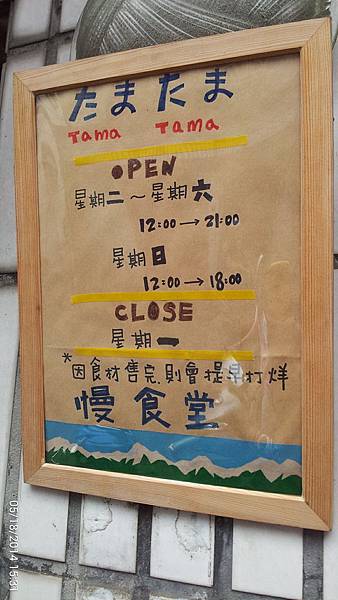 たまたま
Tama Tama
OPEN
星期二～星期六
12:00→21:00
星期日
12:00→18:00
CLOSE
星期一
*因食材售完,則會提早打烊
慢食堂
05/18/2014 15:31